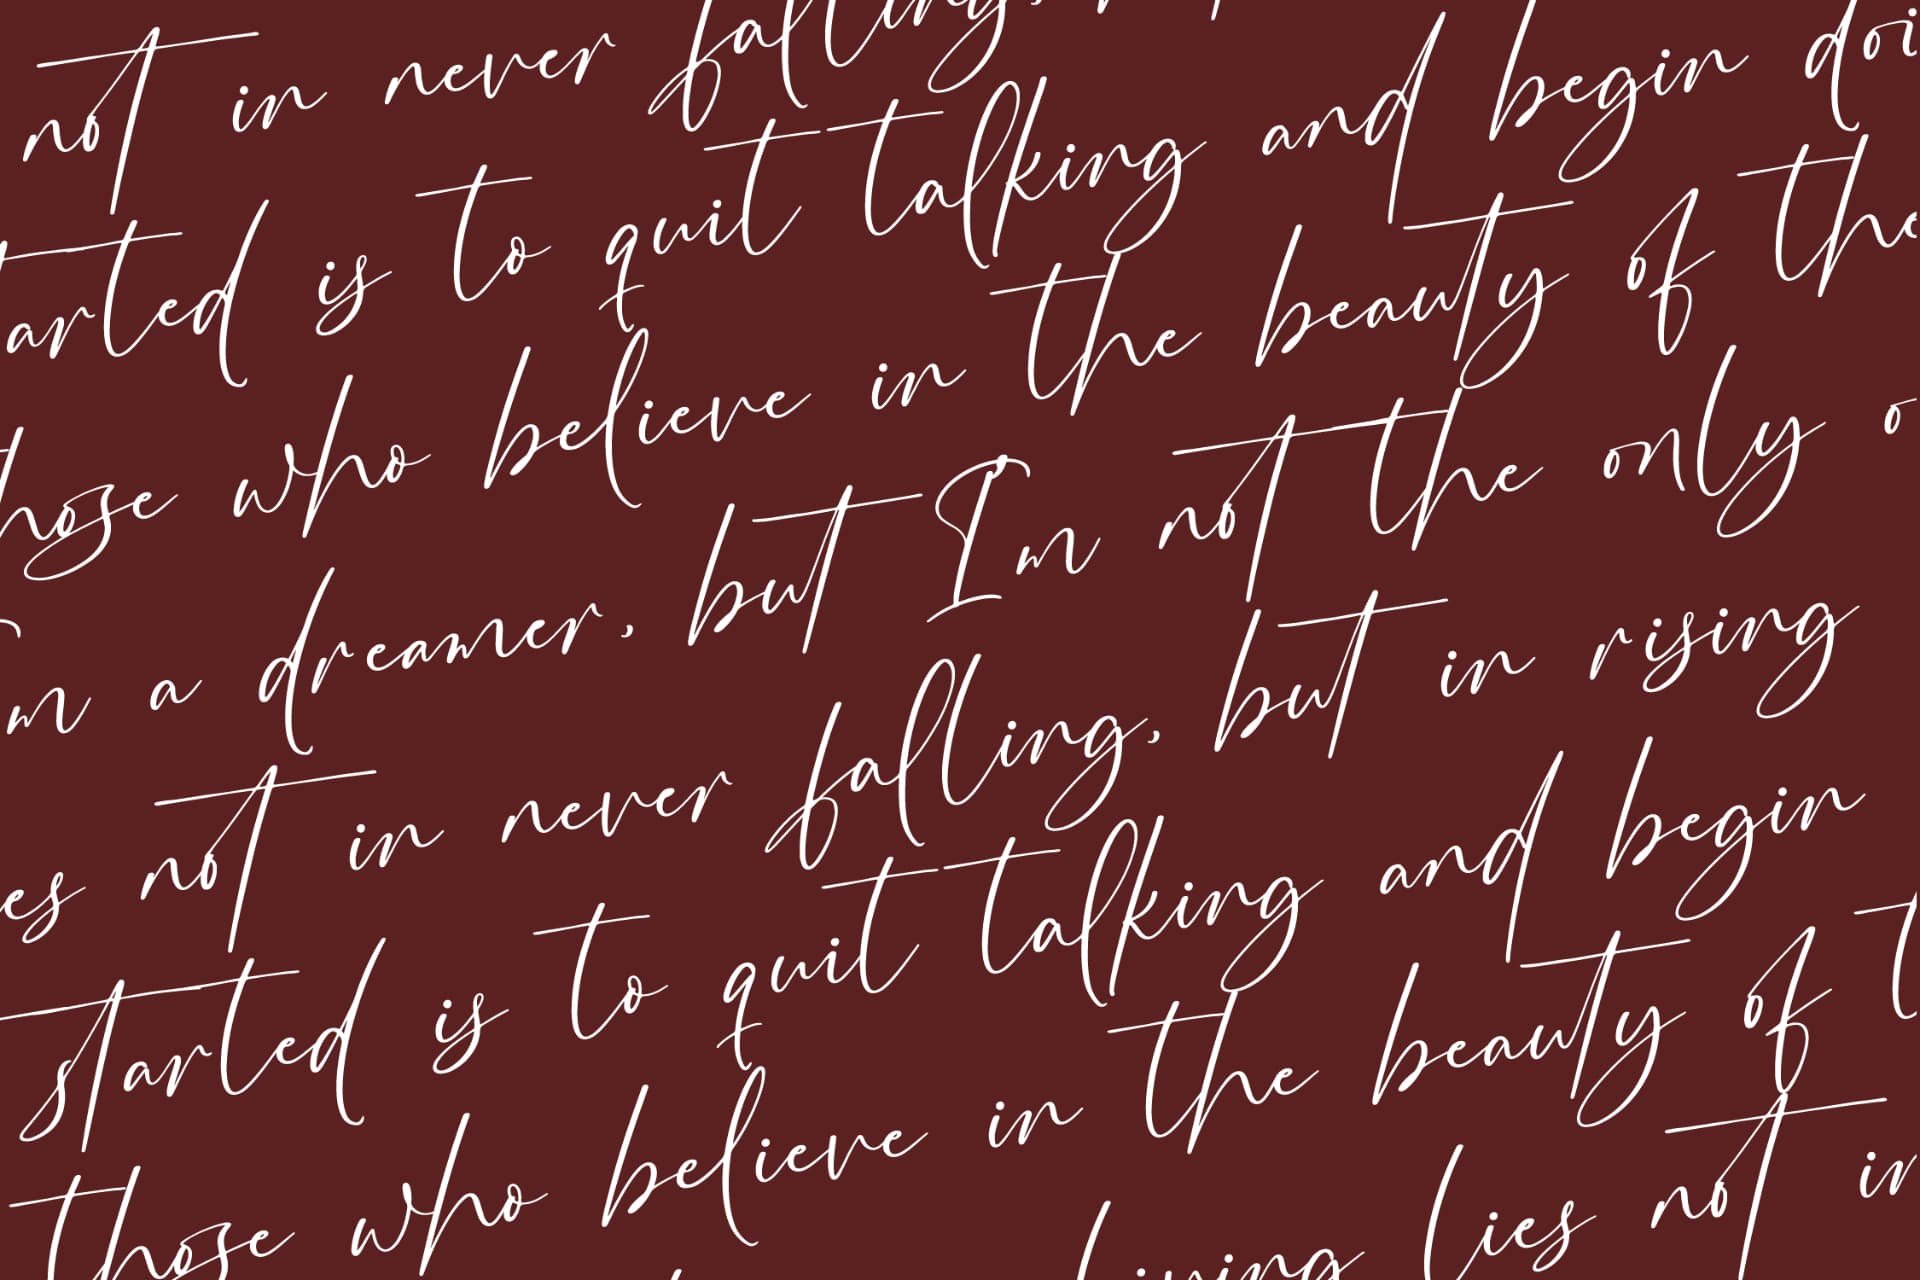 not in never falling,
arted is to quit talking and begin doi
hose who believe in the beauty of the
m a dreamer, but I'm not the only o
es not in never falling, but in rising
started is to quit talking and begin
those who believe in the beauty of t
living lies not in